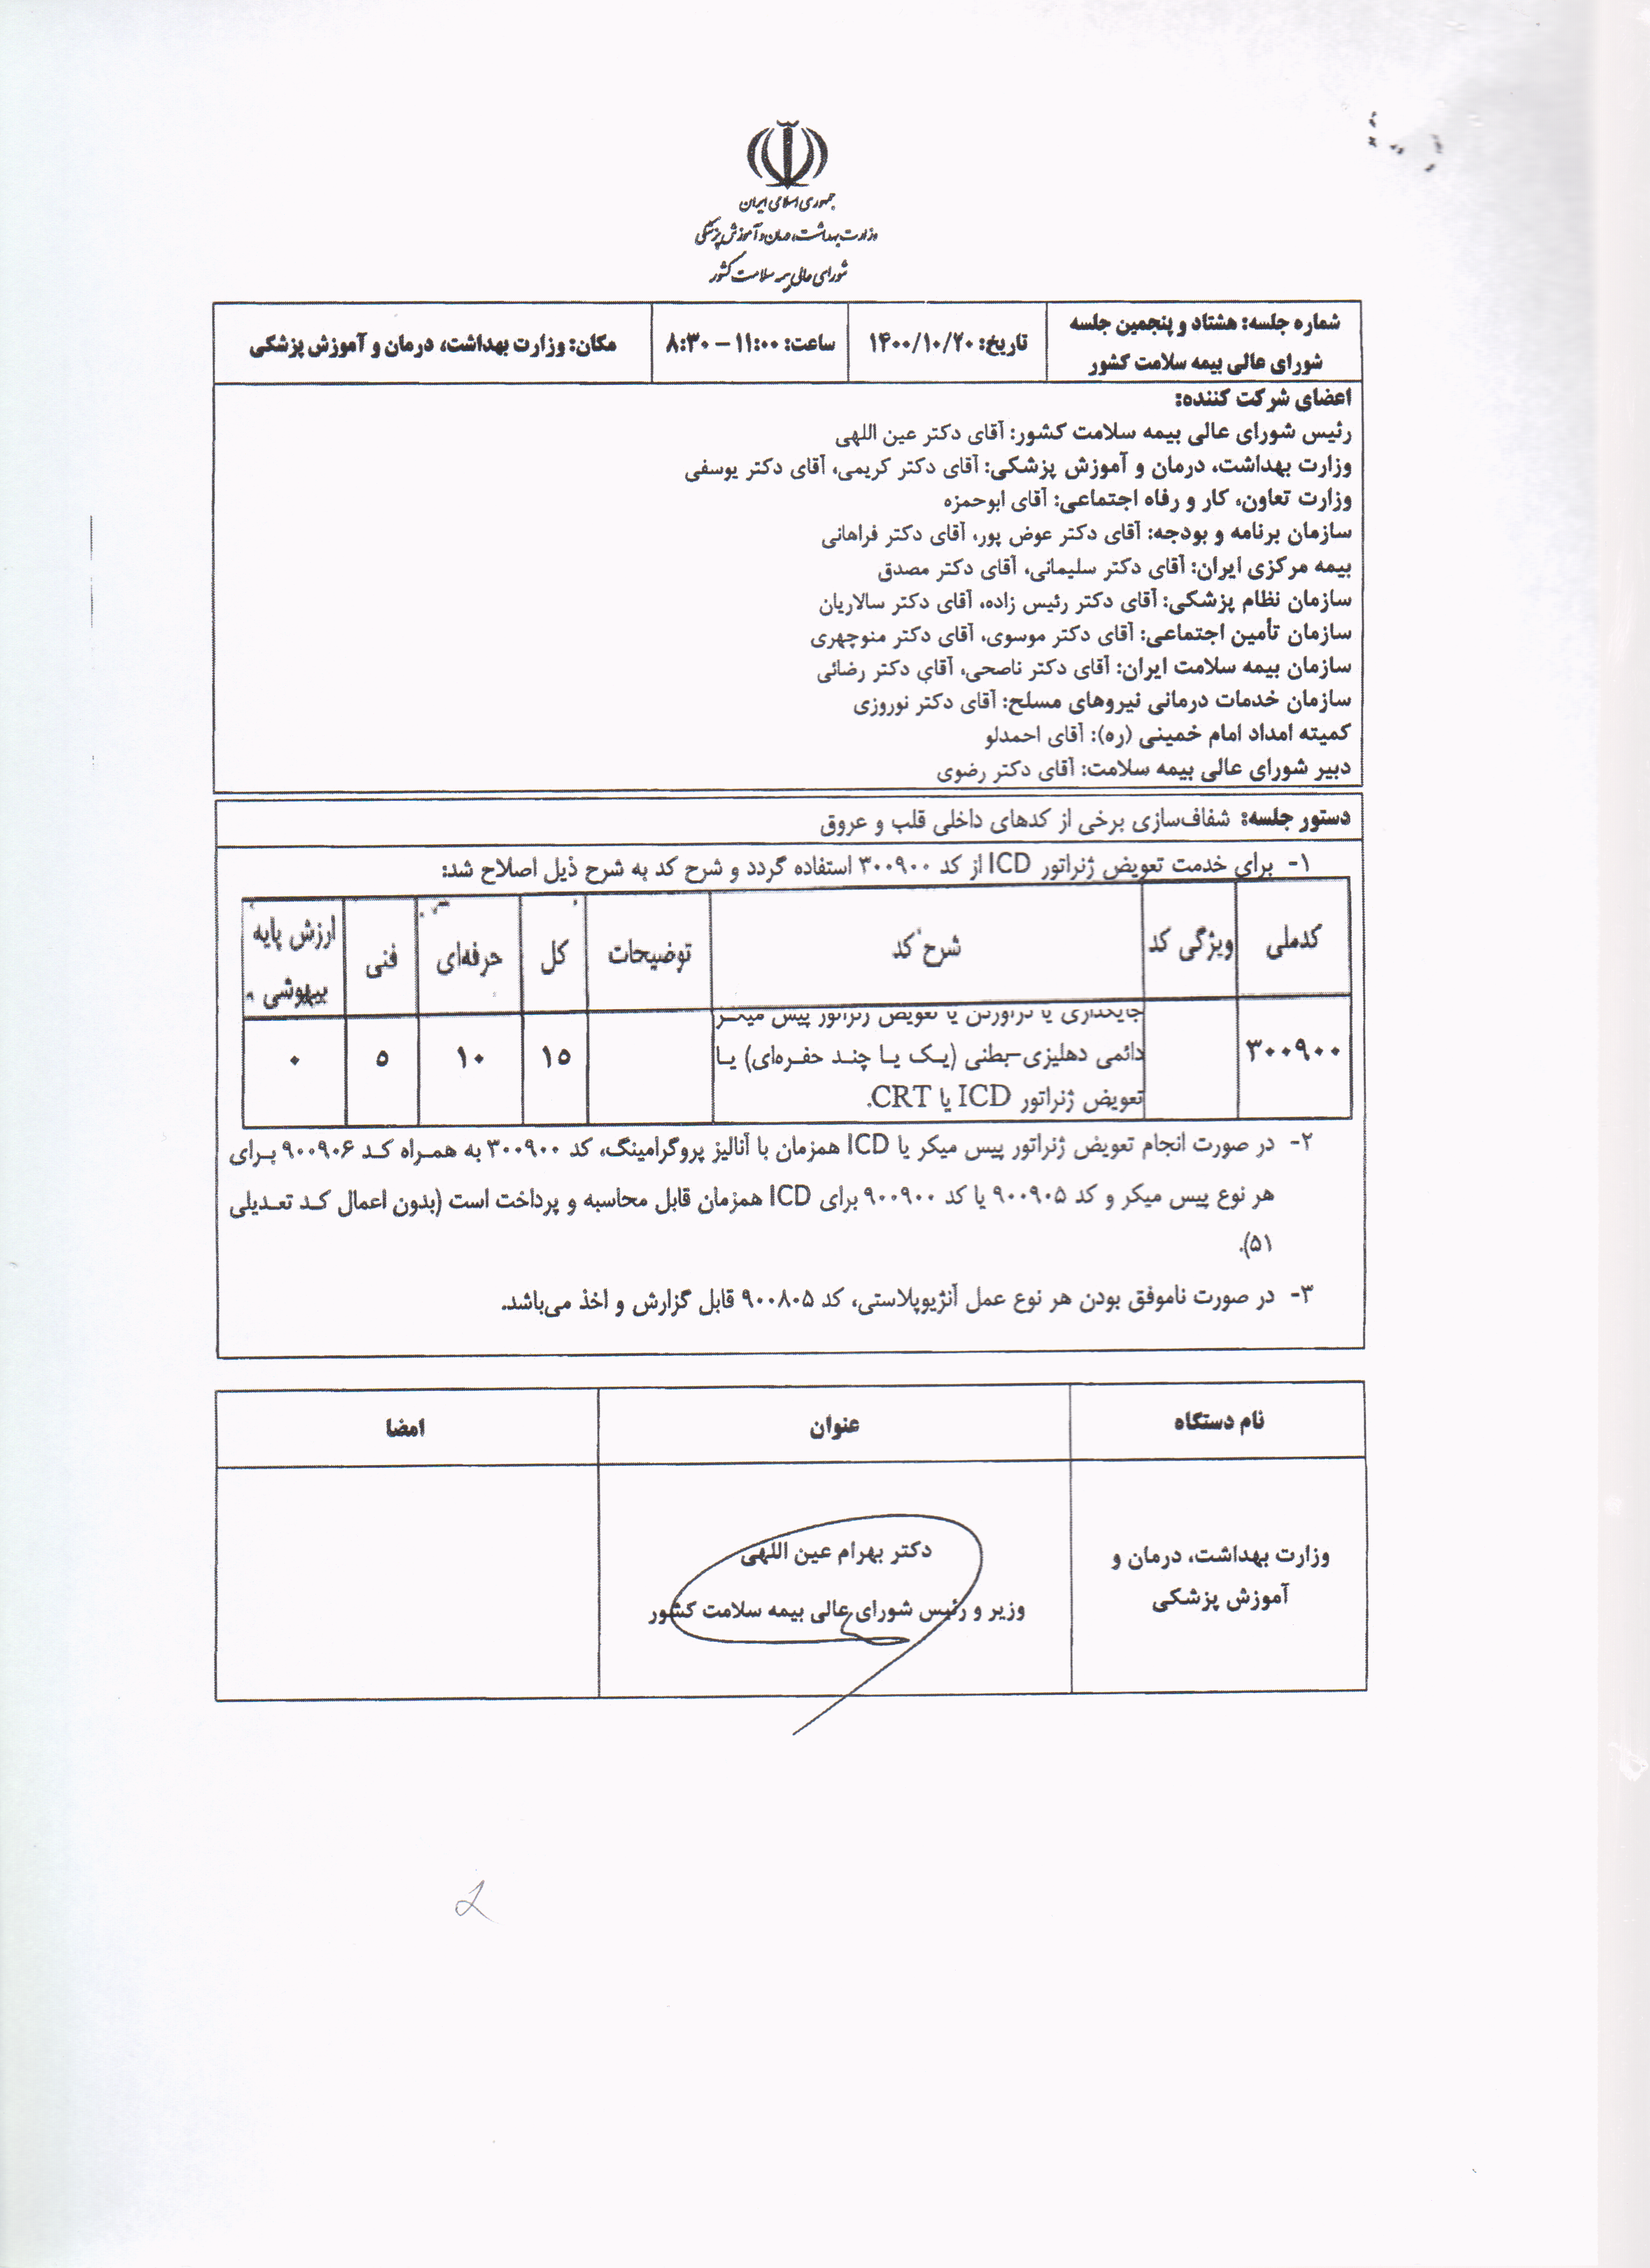 جمهوری اسلامی ایران
وزارت بهداشت، درمان و آموزش پزشکی
شورای عالی بیمه سلامت کشور
شماره جلسه: هشتاد و پنجمین جلسه شورای عالی بیمه سلامت کشور
تاریخ: ۱۴۰۰/۱۰/۲۰
ساعت: ۱۱:۰۰ – ۸:۳۰
مکان: وزارت بهداشت، درمان و آموزش پزشکی
اعضای شرکت کننده:
رئیس شورای عالی بیمه سلامت کشور: آقای دکتر عین اللهی
وزارت بهداشت، درمان و آموزش پزشکی: آقای دکتر کریمی، آقای دکتر یوسفی
وزارت تعاون، کار و رفاه اجتماعی: آقای ابوحمزه
سازمان برنامه و بودجه: آقای دکتر عوض پور، آقای دکتر فراهانی
بیمه مرکزی ایران: آقای دکتر سلیمانی، آقای دکتر مصدق
سازمان نظام پزشکی: آقای دکتر رئیس زاده، آقای دکتر سالاریان
سازمان تأمین اجتماعی: آقای دکتر موسوی، آقای دکتر منوچهری
سازمان بیمه سلامت ایران: آقای دکتر ناصحی، آقای دکتر رضائی
سازمان خدمات درمانی نیروهای مسلح: آقای دکتر نوروزی
کمیته امداد امام خمینی (ره): آقای احمدلو
دبیر شورای عالی بیمه سلامت: آقای دکتر رضوی
دستور جلسه: شفاف‌سازی برخی از کدهای داخلی قلب و عروق
۱- برای خدمت تعویض ژنراتور ICD از کد ۳۰۰۹۰۰ استفاده گردد و شرح کد به شرح ذیل اصلاح شد:
کدملی ویژگی کد شرح کد توضیحات کل حرفه‌ای فنی ارزش پایه بیهوشی
جایگذاری یا درآوردن یا تعویض ژنراتور پیس میکر
۳۰۰۹۰۰ دائمی دهلیزی-بطنی (یک یا چند حفره‌ای) یا ۱۵ ۱۰ ۵ ۰
تعویض ژنراتور ICD یا CRT.
۲- در صورت انجام تعویض ژنراتور پیس میکر یا ICD همزمان با آنالیز پروگرامینگ، کد ۳۰۰۹۰۰ به همراه کد ۹۰۰۹۰۶ برای
هر نوع پیس میکر و کد ۹۰۰۹۰۵ یا کد ۹۰۰۹۰۰ برای ICD همزمان قابل محاسبه و پرداخت است (بدون اعمال کد تعدیلی
۵۱).
۳- در صورت ناموفق بودن هر نوع عمل آنژیوپلاستی، کد ۹۰۰۸۰۵ قابل گزارش و اخذ می‌باشد.
نام دستگاه عنوان امضا
وزارت بهداشت، درمان و
آموزش پزشکی
دکتر بهرام عین اللهی
وزیر و رئیس شورای عالی بیمه سلامت کشور